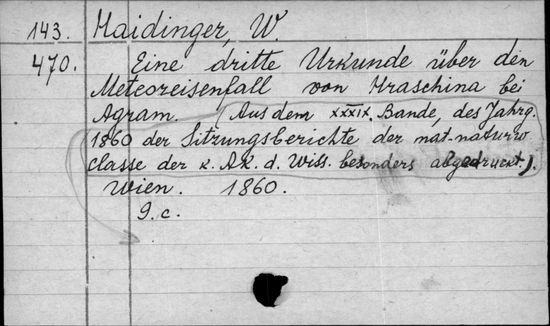 143. Haidinger, W.
470. Eine dritte Urkunde über den
Meteoreisenfall von Hraschina bei
Agram. (Aus dem XXXIX. Bande, des Jahrg.
1860 der Sitzungsberichte der mat. naturw
classe der k. Ak. d. Wiss. besonders abgedruckt.).
Wien. 1860.
9. c.